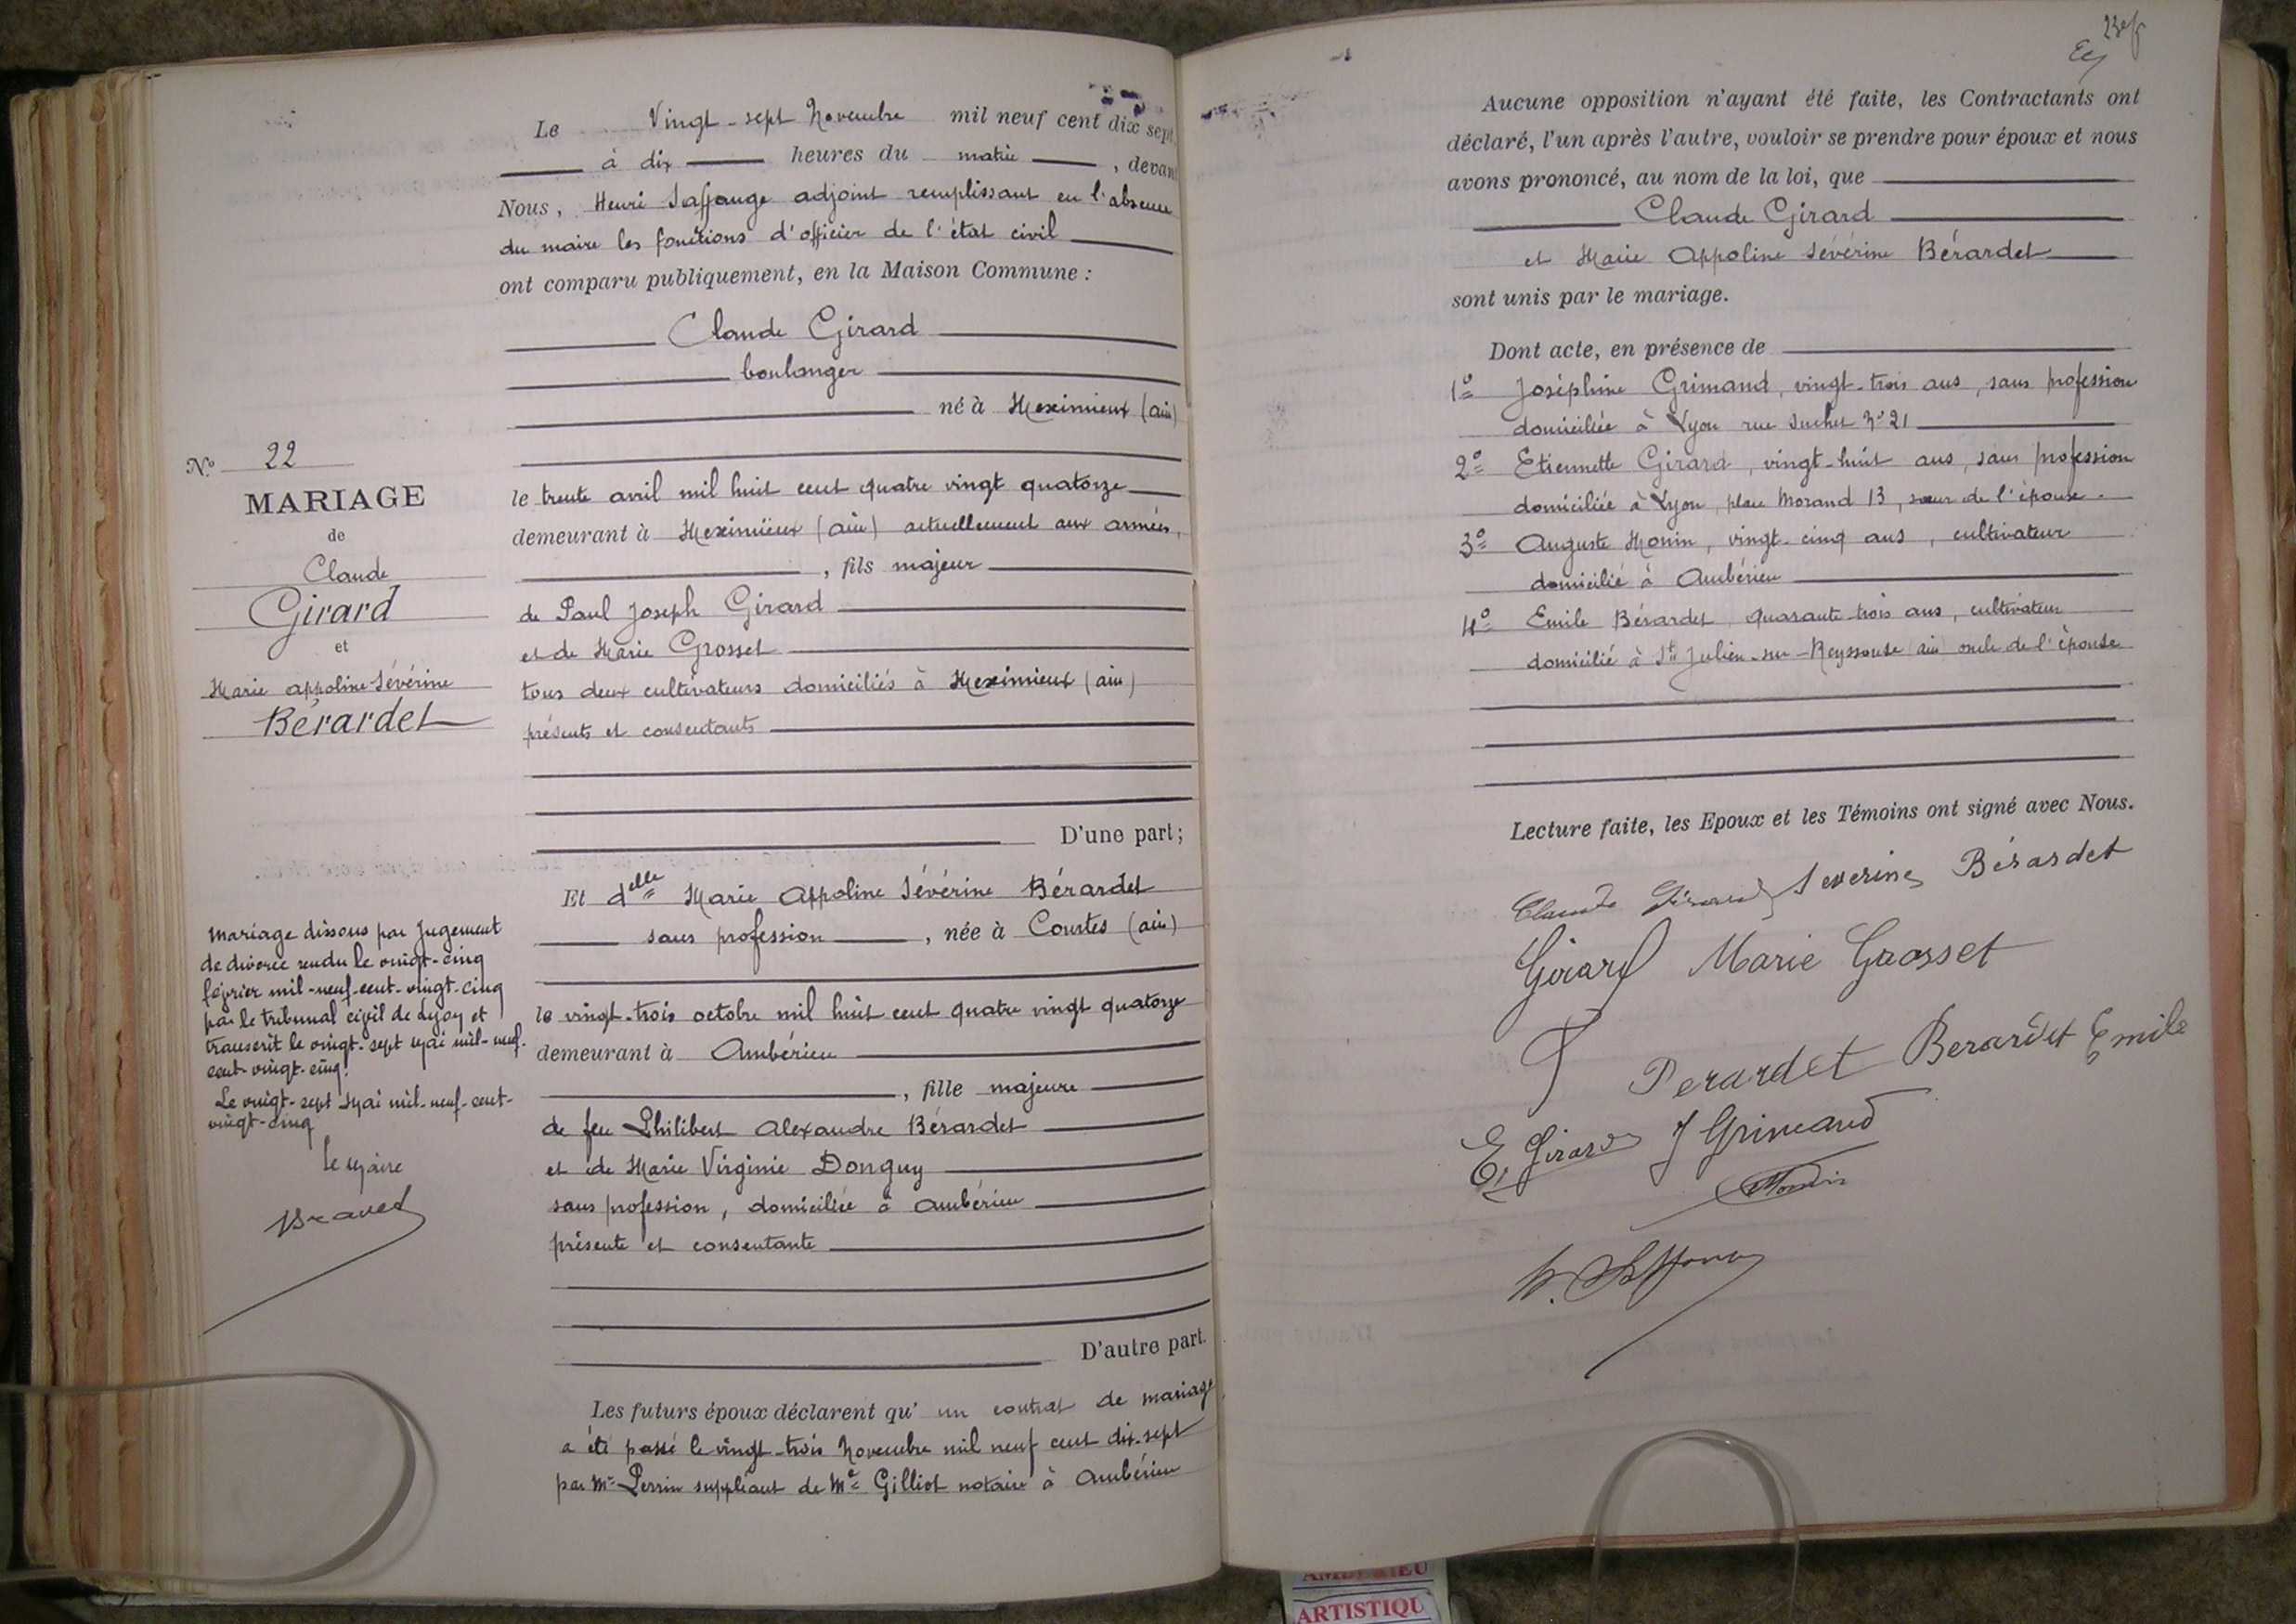 Le Vingt-sept Novembre mil neuf cent dix sept
à dix heures du matin, devant
Nous, Henri adjoint remplissant en l'absence
du maire les fonctions d'officier de l'état civil
ont comparu publiquement, en la Maison Commune :
Claude Girard
boulanger
né à Meximieux (ain)
le trente avril mil huit cent quatre vingt quatorze
demeurant à Meximieux (ain) actuellement aux armées,
, fils majeur
de Paul Joseph Girard
et de Marie Grosset
tous deux cultivateurs domiciliés à Meximieux (ain)
présents et consentants
D'une part ;
Et delle Marie Appoline Sévérine Bérardet
sans profession, née à Courtes (ain)
le vingt-trois octobre mil huit cent quatre vingt quatorze
demeurant à Ambérieu
, fille majeure
de feu Philibert Alexandre Bérardet
et de Marie Virginie Donguy
sans profession, domiciliée à Ambérieu
présente et consentante
D'autre part.
Les futurs époux déclarent qu' un contrat de mariage
a été passé le vingt-trois Novembre mil neuf cent dix-sept
par Me Perrin suppléant de Me Gilliot notaire à Ambérieu
No 22
MARIAGE
de
Claude
Girard
et
Marie Appoline Sévérine
Bérardet
Mariage dissous par Jugement
de divorce rendu le vingt-cinq
février mil-neuf-cent-vingt-cinq
par le tribunal civil de Lyon et
transcrit le vingt-sept Mai mil-neuf-
cent-vingt-cinq.
Le vingt-sept Mai mil-neuf-cent-
vingt-cinq
Le Maire
Aucune opposition n'ayant été faite, les Contractants ont
déclaré, l'un après l'autre, vouloir se prendre pour époux et nous
avons prononcé, au nom de la loi, que
Claude Girard
et Marie Appoline Sévérine Bérardet
sont unis par le mariage.
Dont acte, en présence de
1o Joséphine Grimand, vingt-trois ans, sans profession
domiciliée à Lyon rue Suchet No 21
2o Etiennette Girard, vingt-huit ans, sans profession
domiciliée à Lyon, place Morand 13, sœur de l'époux.
3o Auguste Monin, vingt-cinq ans, cultivateur
domicilié à Ambérieu
4o Emile Bérardet quarante-trois ans, cultivateur
domicilié à St Julien-sur-Reyssouse (ain) oncle de l'épouse
Lecture faite, les Epoux et les Témoins ont signé avec Nous.
Claude Girard Severine Bérardet
Girard Marie Grosset
Berardet Berardet Emile
E. Girard J Grimand
Monin
AMBERIEU
ARTISTIQU